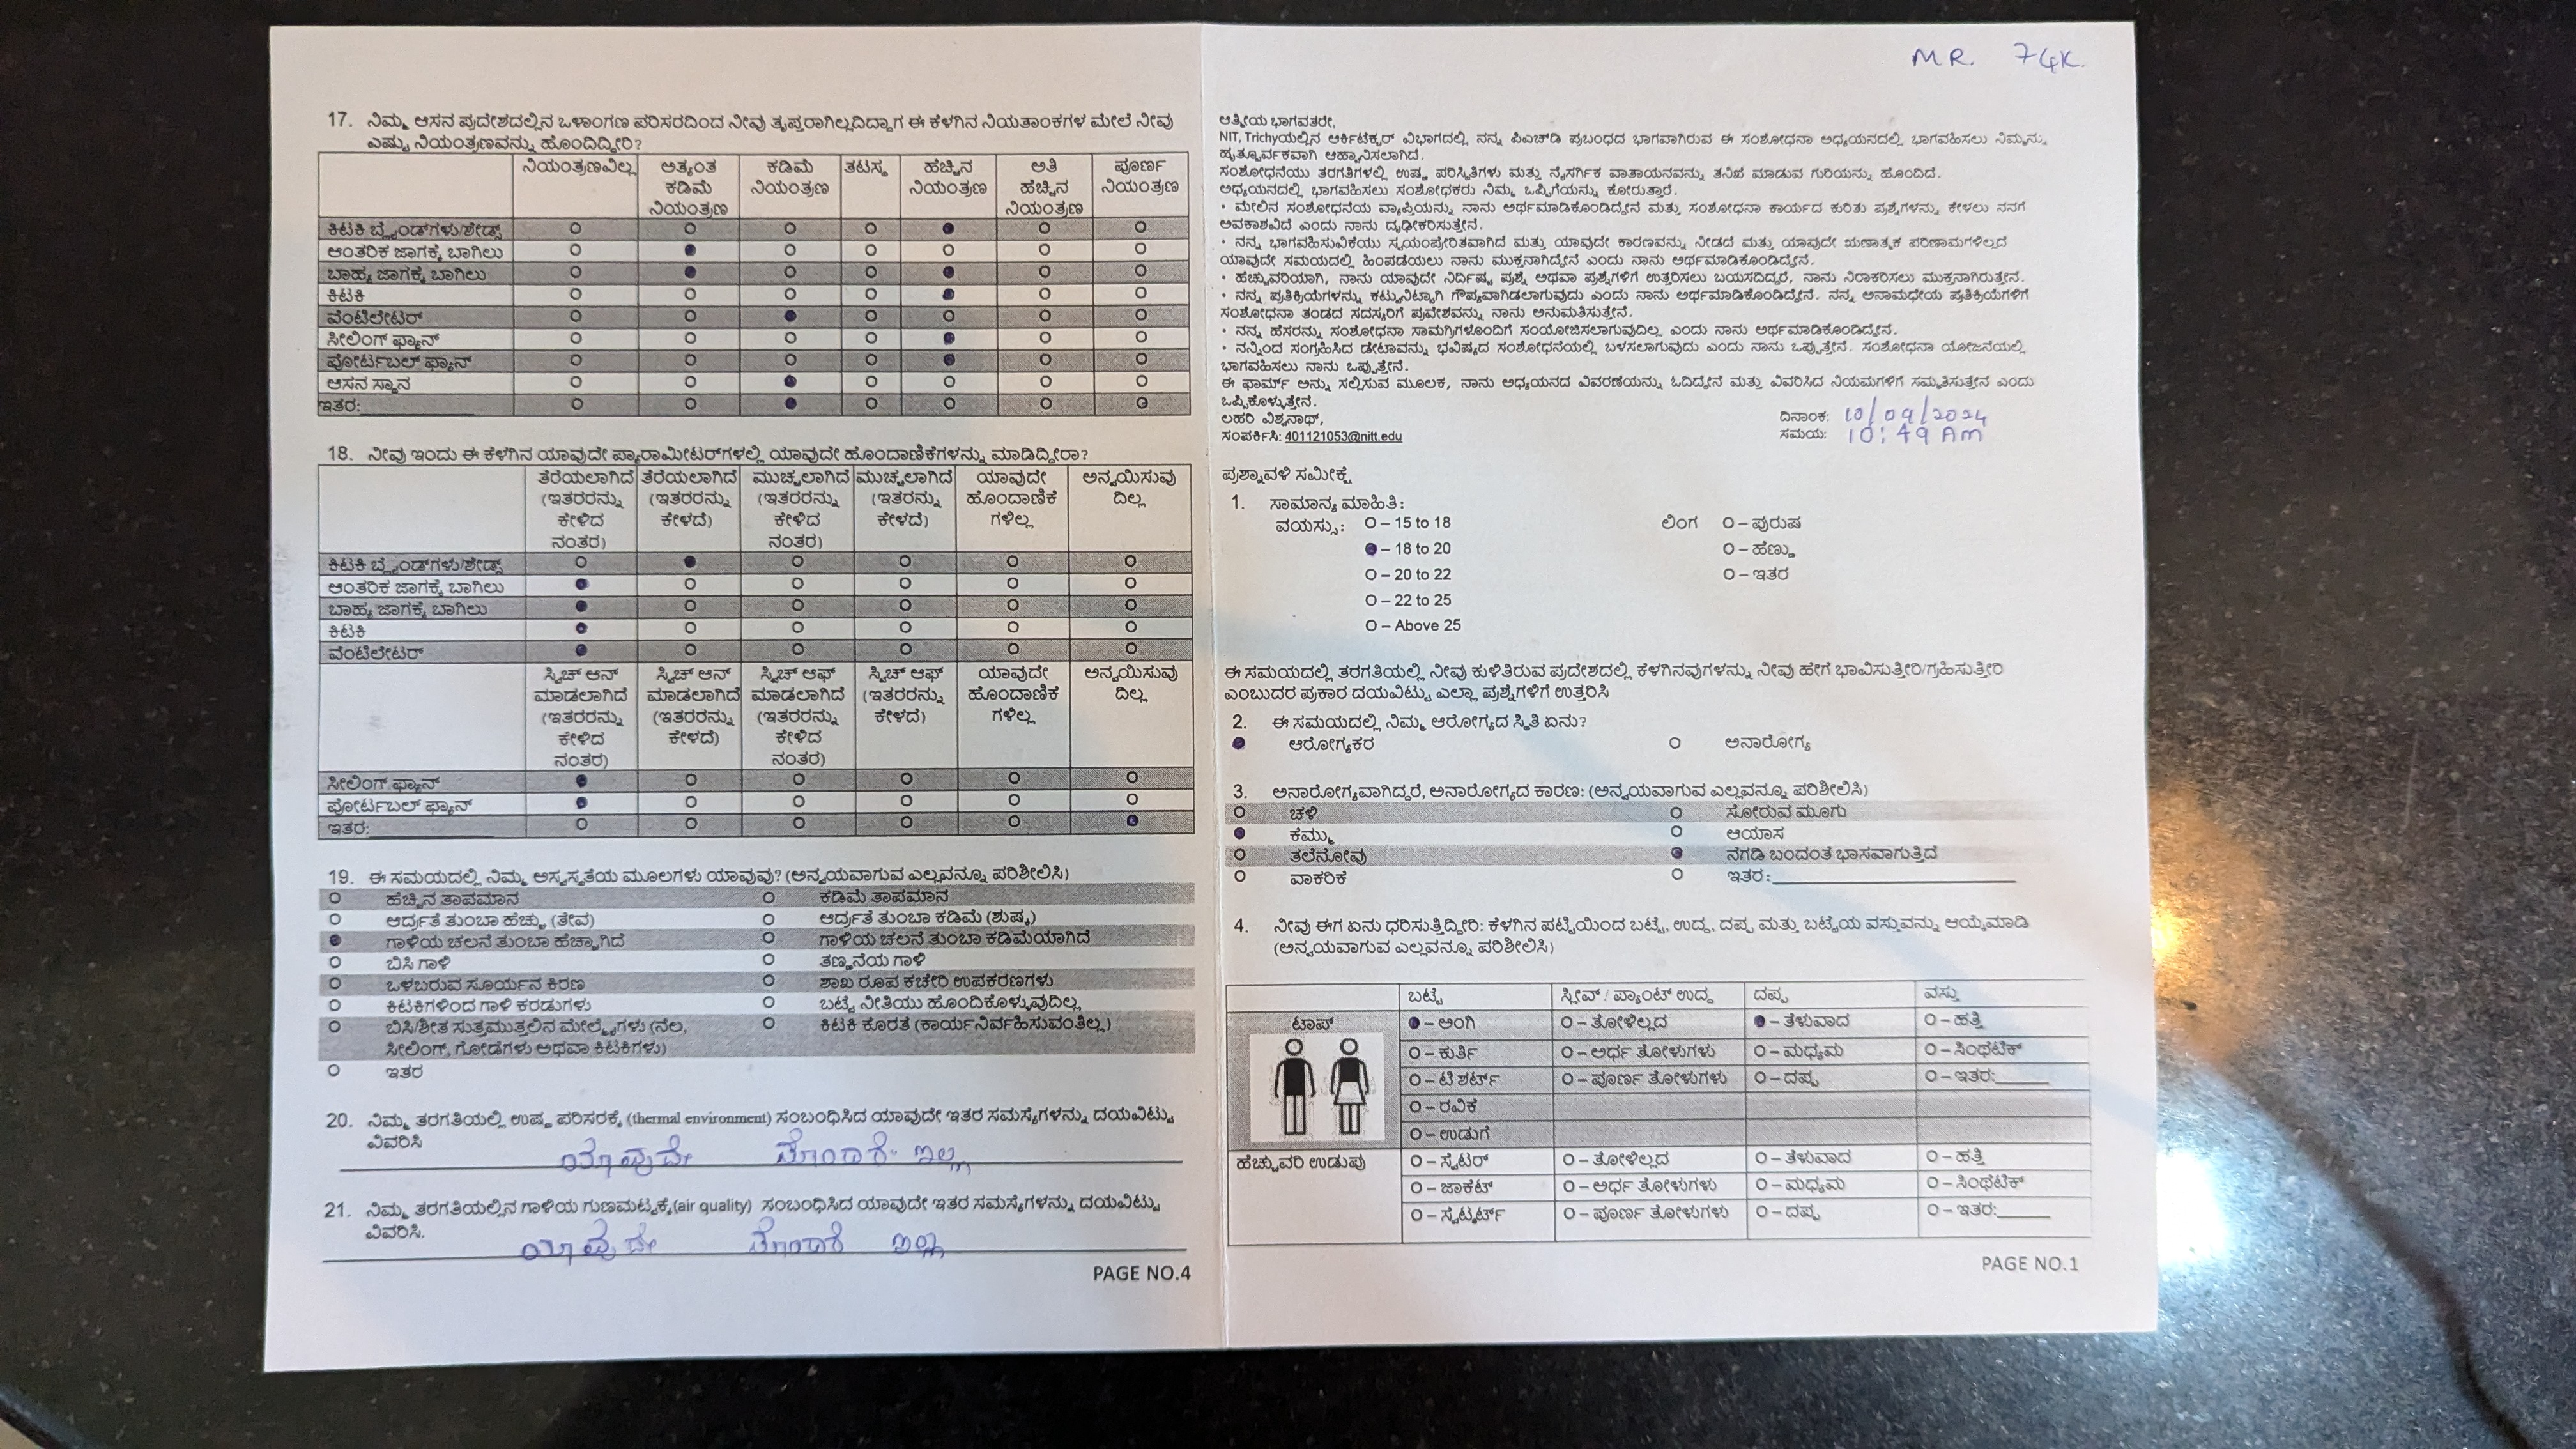 17. ನಿಮ್ಮ ಆಸನ ಪ್ರದೇಶದಲ್ಲಿನ ಒಳಾಂಗಣ ಪರಿಸರದಿಂದ ನೀವು ತೃಪ್ತರಾಗಿಲ್ಲದಿದ್ದಾಗ ಈ ಕೆಳಗಿನ ನಿಯತಾಂಕಗಳ ಮೇಲೆ ನೀವು
ಎಷ್ಟು ನಿಯಂತ್ರಣವನ್ನು ಹೊಂದಿದ್ದೀರಿ?
ನಿಯಂತ್ರಣವಿಲ್ಲ ಅತ್ಯಂತ ಕಡಿಮೆ ನಿಯಂತ್ರಣ ಕಡಿಮೆ ನಿಯಂತ್ರಣ ತಟಸ್ಥ ಹೆಚ್ಚಿನ ನಿಯಂತ್ರಣ ಅತಿ ಹೆಚ್ಚಿನ ನಿಯಂತ್ರಣ ಪೂರ್ಣ ನಿಯಂತ್ರಣ
ಕಿಟಕಿ ಬ್ಲೈಂಡ್‌ಗಳು/ಶೇಡ್ಸ್
ಆಂತರಿಕ ಜಾಗಕ್ಕೆ ಬಾಗಿಲು
ಬಾಹ್ಯ ಜಾಗಕ್ಕೆ ಬಾಗಿಲು
ಕಿಟಕಿ
ವೆಂಟಿಲೇಟರ್
ಸೀಲಿಂಗ್ ಫ್ಯಾನ್
ಪೋರ್ಟಬಲ್ ಫ್ಯಾನ್
ಆಸನ ಸ್ಥಾನ
ಇತರ:
18. ನೀವು ಇಂದು ಈ ಕೆಳಗಿನ ಯಾವುದೇ ಪ್ಯಾರಾಮೀಟರ್‌ಗಳಲ್ಲಿ ಯಾವುದೇ ಹೊಂದಾಣಿಕೆಗಳನ್ನು ಮಾಡಿದ್ದೀರಾ?
ತೆರೆಯಲಾಗಿದೆ (ಇತರರನ್ನು ಕೇಳಿದ ನಂತರ) ತೆರೆಯಲಾಗಿದೆ (ಇತರರನ್ನು ಕೇಳದೆ) ಮುಚ್ಚಲಾಗಿದೆ (ಇತರರನ್ನು ಕೇಳಿದ ನಂತರ) ಮುಚ್ಚಲಾಗಿದೆ (ಇತರರನ್ನು ಕೇಳದೆ) ಯಾವುದೇ ಹೊಂದಾಣಿಕೆ ಗಳಿಲ್ಲ ಅನ್ವಯಿಸುವು ದಿಲ್ಲ
ಕಿಟಕಿ ಬ್ಲೈಂಡ್‌ಗಳು/ಶೇಡ್ಸ್
ಆಂತರಿಕ ಜಾಗಕ್ಕೆ ಬಾಗಿಲು
ಬಾಹ್ಯ ಜಾಗಕ್ಕೆ ಬಾಗಿಲು
ಕಿಟಕಿ
ವೆಂಟಿಲೇಟರ್
ಸ್ವಿಚ್ ಆನ್ ಮಾಡಲಾಗಿದೆ (ಇತರರನ್ನು ಕೇಳಿದ ನಂತರ) ಸ್ವಿಚ್ ಆನ್ ಮಾಡಲಾಗಿದೆ (ಇತರರನ್ನು ಕೇಳದೆ) ಸ್ವಿಚ್ ಆಫ್ ಮಾಡಲಾಗಿದೆ (ಇತರರನ್ನು ಕೇಳಿದ ನಂತರ) ಸ್ವಿಚ್ ಆಫ್ (ಇತರರನ್ನು ಕೇಳದೆ) ಯಾವುದೇ ಹೊಂದಾಣಿಕೆ ಗಳಿಲ್ಲ ಅನ್ವಯಿಸುವು ದಿಲ್ಲ
ಸೀಲಿಂಗ್ ಫ್ಯಾನ್
ಪೋರ್ಟಬಲ್ ಫ್ಯಾನ್
ಇತರ:
19. ಈ ಸಮಯದಲ್ಲಿ ನಿಮ್ಮ ಅಸ್ವಸ್ಥತೆಯ ಮೂಲಗಳು ಯಾವುವು? (ಅನ್ವಯವಾಗುವ ಎಲ್ಲವನ್ನೂ ಪರಿಶೀಲಿಸಿ)
ಹೆಚ್ಚಿನ ತಾಪಮಾನ ಕಡಿಮೆ ತಾಪಮಾನ
ಆರ್ದ್ರತೆ ತುಂಬಾ ಹೆಚ್ಚು (ತೇವ) ಆರ್ದ್ರತೆ ತುಂಬಾ ಕಡಿಮೆ (ಶುಷ್ಕ)
ಗಾಳಿಯ ಚಲನೆ ತುಂಬಾ ಹೆಚ್ಚಾಗಿದೆ ಗಾಳಿಯ ಚಲನೆ ತುಂಬಾ ಕಡಿಮೆಯಾಗಿದೆ
ಬಿಸಿ ಗಾಳಿ ತಣ್ಣನೆಯ ಗಾಳಿ
ಒಳಬರುವ ಸೂರ್ಯನ ಕಿರಣ ಶಾಖ ರೂಪ ಕಚೇರಿ ಉಪಕರಣಗಳು
ಕಿಟಕಿಗಳಿಂದ ಗಾಳಿ ಕರಡುಗಳು ಬಟ್ಟೆ ನೀತಿಯು ಹೊಂದಿಕೊಳ್ಳುವುದಿಲ್ಲ
ಬಿಸಿ/ಶೀತ ಸುತ್ತಮುತ್ತಲಿನ ಮೇಲ್ಮೈಗಳು (ನೆಲ, ಕಿಟಕಿ ಕೊರತೆ (ಕಾರ್ಯನಿರ್ವಹಿಸುವಂತಿಲ್ಲ)
ಸೀಲಿಂಗ್, ಗೋಡೆಗಳು ಅಥವಾ ಕಿಟಕಿಗಳು)
ಇತರ
20. ನಿಮ್ಮ ತರಗತಿಯಲ್ಲಿ ಉಷ್ಣ ಪರಿಸರಕ್ಕೆ (thermal environment) ಸಂಬಂಧಿಸಿದ ಯಾವುದೇ ಇತರ ಸಮಸ್ಯೆಗಳನ್ನು ದಯವಿಟ್ಟು
ವಿವರಿಸಿ
ಯಾವುದೇ ತೊಂದರೆ ಇಲ್ಲ
21. ನಿಮ್ಮ ತರಗತಿಯಲ್ಲಿನ ಗಾಳಿಯ ಗುಣಮಟ್ಟಕ್ಕೆ(air quality) ಸಂಬಂಧಿಸಿದ ಯಾವುದೇ ಇತರ ಸಮಸ್ಯೆಗಳನ್ನು ದಯವಿಟ್ಟು
ವಿವರಿಸಿ.
ಯಾವುದೇ ತೊಂದರೆ ಇಲ್ಲ
PAGE NO.4
MR. 74K.
ಆತ್ಮೀಯ ಭಾಗವತರೇ,
NIT, Trichyಯಲ್ಲಿನ ಆರ್ಕಿಟೆಕ್ಚರ್ ವಿಭಾಗದಲ್ಲಿ ನನ್ನ ಪಿಎಚ್‌ಡಿ ಪ್ರಬಂಧದ ಭಾಗವಾಗಿರುವ ಈ ಸಂಶೋಧನಾ ಅಧ್ಯಯನದಲ್ಲಿ ಭಾಗವಹಿಸಲು ನಿಮ್ಮನ್ನು
ಹೃತ್ಪೂರ್ವಕವಾಗಿ ಆಹ್ವಾನಿಸಲಾಗಿದೆ.
ಸಂಶೋಧನೆಯು ತರಗತಿಗಳಲ್ಲಿ ಉಷ್ಣ ಪರಿಸ್ಥಿತಿಗಳು ಮತ್ತು ನೈಸರ್ಗಿಕ ವಾತಾಯನವನ್ನು ತನಿಖೆ ಮಾಡುವ ಗುರಿಯನ್ನು ಹೊಂದಿದೆ.
ಅಧ್ಯಯನದಲ್ಲಿ ಭಾಗವಹಿಸಲು ಸಂಶೋಧಕರು ನಿಮ್ಮ ಒಪ್ಪಿಗೆಯನ್ನು ಕೋರುತ್ತಾರೆ.
• ಮೇಲಿನ ಸಂಶೋಧನೆಯ ವ್ಯಾಪ್ತಿಯನ್ನು ನಾನು ಅರ್ಥಮಾಡಿಕೊಂಡಿದ್ದೇನೆ ಮತ್ತು ಸಂಶೋಧನಾ ಕಾರ್ಯದ ಕುರಿತು ಪ್ರಶ್ನೆಗಳನ್ನು ಕೇಳಲು ನನಗೆ
ಅವಕಾಶವಿದೆ ಎಂದು ನಾನು ದೃಢೀಕರಿಸುತ್ತೇನೆ.
• ನನ್ನ ಭಾಗವಹಿಸುವಿಕೆಯು ಸ್ವಯಂಪ್ರೇರಿತವಾಗಿದೆ ಮತ್ತು ಯಾವುದೇ ಕಾರಣವನ್ನು ನೀಡದೆ ಮತ್ತು ಯಾವುದೇ ಋಣಾತ್ಮಕ ಪರಿಣಾಮಗಳಿಲ್ಲದೆ
ಯಾವುದೇ ಸಮಯದಲ್ಲಿ ಹಿಂಪಡೆಯಲು ನಾನು ಮುಕ್ತನಾಗಿದ್ದೇನೆ ಎಂದು ನಾನು ಅರ್ಥಮಾಡಿಕೊಂಡಿದ್ದೇನೆ.
• ಹೆಚ್ಚುವರಿಯಾಗಿ, ನಾನು ಯಾವುದೇ ನಿರ್ದಿಷ್ಟ ಪ್ರಶ್ನೆ ಅಥವಾ ಪ್ರಶ್ನೆಗಳಿಗೆ ಉತ್ತರಿಸಲು ಬಯಸದಿದ್ದರೆ, ನಾನು ನಿರಾಕರಿಸಲು ಮುಕ್ತನಾಗಿರುತ್ತೇನೆ.
• ನನ್ನ ಪ್ರತಿಕ್ರಿಯೆಗಳನ್ನು ಕಟ್ಟುನಿಟ್ಟಾಗಿ ಗೌಪ್ಯವಾಗಿಡಲಾಗುವುದು ಎಂದು ನಾನು ಅರ್ಥಮಾಡಿಕೊಂಡಿದ್ದೇನೆ. ನನ್ನ ಅನಾಮಧೇಯ ಪ್ರತಿಕ್ರಿಯೆಗಳಿಗೆ
ಸಂಶೋಧನಾ ತಂಡದ ಸದಸ್ಯರಿಗೆ ಪ್ರವೇಶವನ್ನು ನಾನು ಅನುಮತಿಸುತ್ತೇನೆ.
• ನನ್ನ ಹೆಸರನ್ನು ಸಂಶೋಧನಾ ಸಾಮಗ್ರಿಗಳೊಂದಿಗೆ ಸಂಯೋಜಿಸಲಾಗುವುದಿಲ್ಲ ಎಂದು ನಾನು ಅರ್ಥಮಾಡಿಕೊಂಡಿದ್ದೇನೆ.
• ನನ್ನಿಂದ ಸಂಗ್ರಹಿಸಿದ ಡೇಟಾವನ್ನು ಭವಿಷ್ಯದ ಸಂಶೋಧನೆಯಲ್ಲಿ ಬಳಸಲಾಗುವುದು ಎಂದು ನಾನು ಒಪ್ಪುತ್ತೇನೆ. ಸಂಶೋಧನಾ ಯೋಜನೆಯಲ್ಲಿ
ಭಾಗವಹಿಸಲು ನಾನು ಒಪ್ಪುತ್ತೇನೆ.
ಈ ಫಾರ್ಮ್ ಅನ್ನು ಸಲ್ಲಿಸುವ ಮೂಲಕ, ನಾನು ಅಧ್ಯಯನದ ವಿವರಣೆಯನ್ನು ಓದಿದ್ದೇನೆ ಮತ್ತು ವಿವರಿಸಿದ ನಿಯಮಗಳಿಗೆ ಸಮ್ಮತಿಸುತ್ತೇನೆ ಎಂದು
ಒಪ್ಪಿಕೊಳ್ಳುತ್ತೇನೆ.
ಲಹರಿ ವಿಶ್ವನಾಥ್, ದಿನಾಂಕ: 10/09/2024
ಸಂಪರ್ಕಿಸಿ: 401121053@nitt.edu ಸಮಯ: 10:49 Am
ಪ್ರಶ್ನಾವಳಿ ಸಮೀಕ್ಷೆ
1. ಸಾಮಾನ್ಯ ಮಾಹಿತಿ:
ವಯಸ್ಸು: O – 15 to 18 ಲಿಂಗ O – ಪುರುಷ
– 18 to 20 O – ಹೆಣ್ಣು
O – 20 to 22 O – ಇತರ
O – 22 to 25
O – Above 25
ಈ ಸಮಯದಲ್ಲಿ ತರಗತಿಯಲ್ಲಿ ನೀವು ಕುಳಿತಿರುವ ಪ್ರದೇಶದಲ್ಲಿ ಕೆಳಗಿನವುಗಳನ್ನು ನೀವು ಹೇಗೆ ಭಾವಿಸುತ್ತೀರಿ/ಗ್ರಹಿಸುತ್ತೀರಿ
ಎಂಬುದರ ಪ್ರಕಾರ ದಯವಿಟ್ಟು ಎಲ್ಲಾ ಪ್ರಶ್ನೆಗಳಿಗೆ ಉತ್ತರಿಸಿ
2. ಈ ಸಮಯದಲ್ಲಿ ನಿಮ್ಮ ಆರೋಗ್ಯದ ಸ್ಥಿತಿ ಏನು?
ಆರೋಗ್ಯಕರ ಅನಾರೋಗ್ಯ
3. ಅನಾರೋಗ್ಯವಾಗಿದ್ದರೆ, ಅನಾರೋಗ್ಯದ ಕಾರಣ: (ಅನ್ವಯವಾಗುವ ಎಲ್ಲವನ್ನೂ ಪರಿಶೀಲಿಸಿ)
ಚಳಿ ಸೋರುವ ಮೂಗು
ಕೆಮ್ಮು ಆಯಾಸ
ತಲೆನೋವು ನೆಗಡಿ ಬಂದಂತೆ ಭಾಸವಾಗುತ್ತಿದೆ
ವಾಕರಿಕೆ ಇತರ:
4. ನೀವು ಈಗ ಏನು ಧರಿಸುತ್ತಿದ್ದೀರಿ: ಕೆಳಗಿನ ಪಟ್ಟಿಯಿಂದ ಬಟ್ಟೆ, ಉದ್ದ, ದಪ್ಪ ಮತ್ತು ಬಟ್ಟೆಯ ವಸ್ತುವನ್ನು ಆಯ್ಕೆಮಾಡಿ
(ಅನ್ವಯವಾಗುವ ಎಲ್ಲವನ್ನೂ ಪರಿಶೀಲಿಸಿ)
ಬಟ್ಟೆ ಸ್ಲೀವ್ / ಪ್ಯಾಂಟ್ ಉದ್ದ ದಪ್ಪ ವಸ್ತು
ಟಾಪ್ – ಅಂಗಿ O – ತೋಳಿಲ್ಲದ – ತೆಳುವಾದ O – ಹತ್ತಿ
O – ಕುರ್ತಿ O – ಅರ್ಧ ತೋಳುಗಳು O – ಮಧ್ಯಮ O – ಸಿಂಥೆಟಿಕ್
O – ಟಿ ಶರ್ಟ್ O – ಪೂರ್ಣ ತೋಳುಗಳು O – ದಪ್ಪ O – ಇತರ:
O – ರವಿಕೆ
O – ಉಡುಗೆ
ಹೆಚ್ಚುವರಿ ಉಡುಪು O – ಸ್ವೆಟರ್ O – ತೋಳಿಲ್ಲದ O – ತೆಳುವಾದ O – ಹತ್ತಿ
O – ಜಾಕೆಟ್ O – ಅರ್ಧ ತೋಳುಗಳು O – ಮಧ್ಯಮ O – ಸಿಂಥೆಟಿಕ್
O – ಸ್ವೆಟ್ಶರ್ಟ್ O – ಪೂರ್ಣ ತೋಳುಗಳು O – ದಪ್ಪ O – ಇತರ:
PAGE NO.1